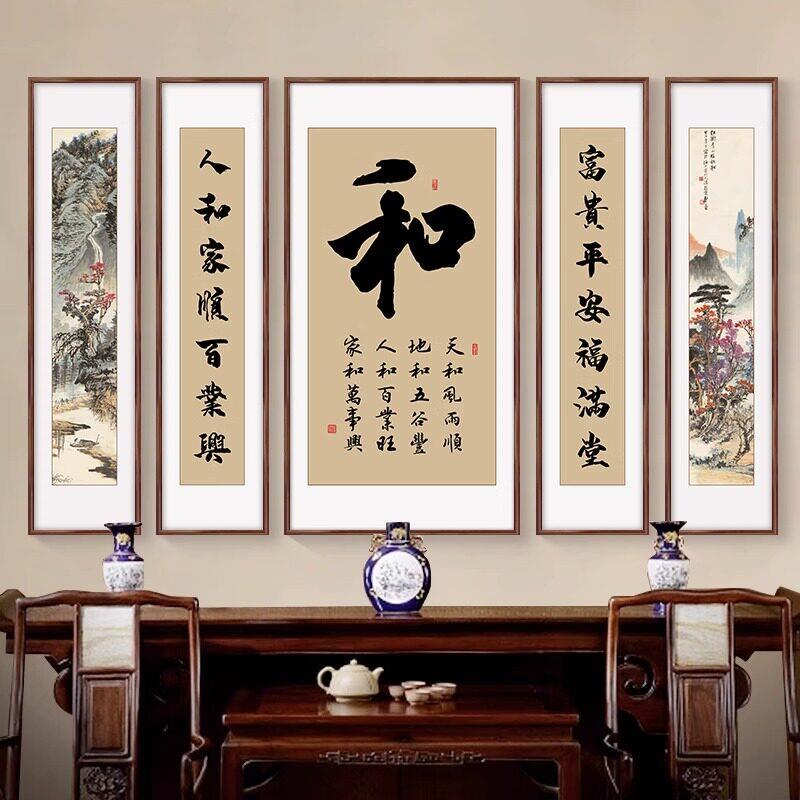 富貴平安福滿堂
和
天和風雨順
地和五谷豐
人和百業旺
家和萬事興
人和家順百業興